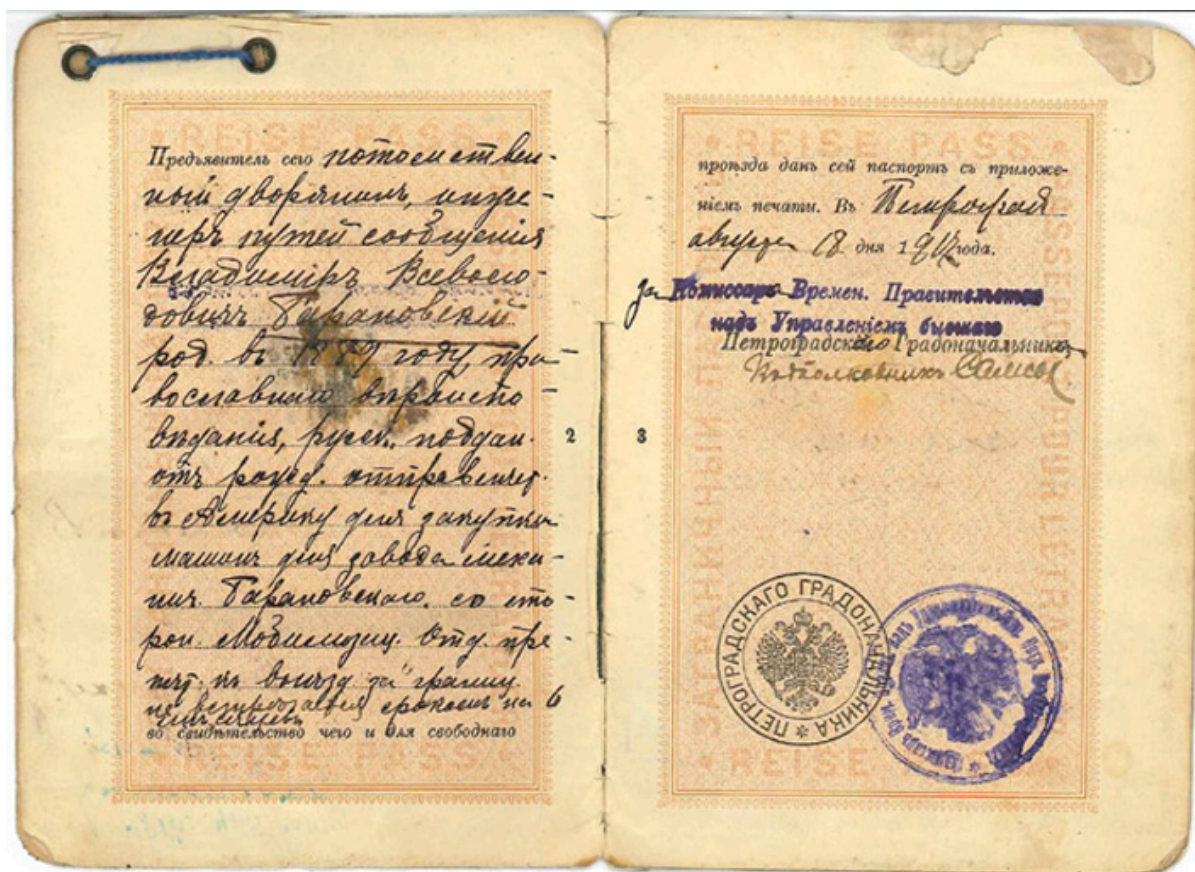 REISE PASS
Предъявитель сего потомствен-
ный дворянинъ, инже-
неръ путей сообщенія
Владиміръ Всеволо-
довичъ Барановскій
род. въ году, пра-
вославнаго вѣроиспо-
вѣданія, русск. поддан.
отъ роду. отправляет.
въ Америку для закупки
машинъ для завода механ-
ич. Барановскаго, со сто-
рон. Мобилизац. Отд. пре-
пят. къ выѣзду за границу
не встрѣчается срокомъ на 6
во свидѣтельство чего и для свободнаго
REISE PASS
2
REISE PASS
проѣзда данъ сей паспортъ съ приложе-
ніемъ печати. Въ Петроградѣ
августа 18 дня 1917 года.
за Комиссара Времен. Правительства
надъ Управленіемъ бывшаго
Петроградскаго Градоначальника,
Подполковникъ
3
ПЕТРОГРАДСКАГО ГРАДОНАЧАЛЬНИКА
ЗАГРАНИЧНЫЙ
REISE